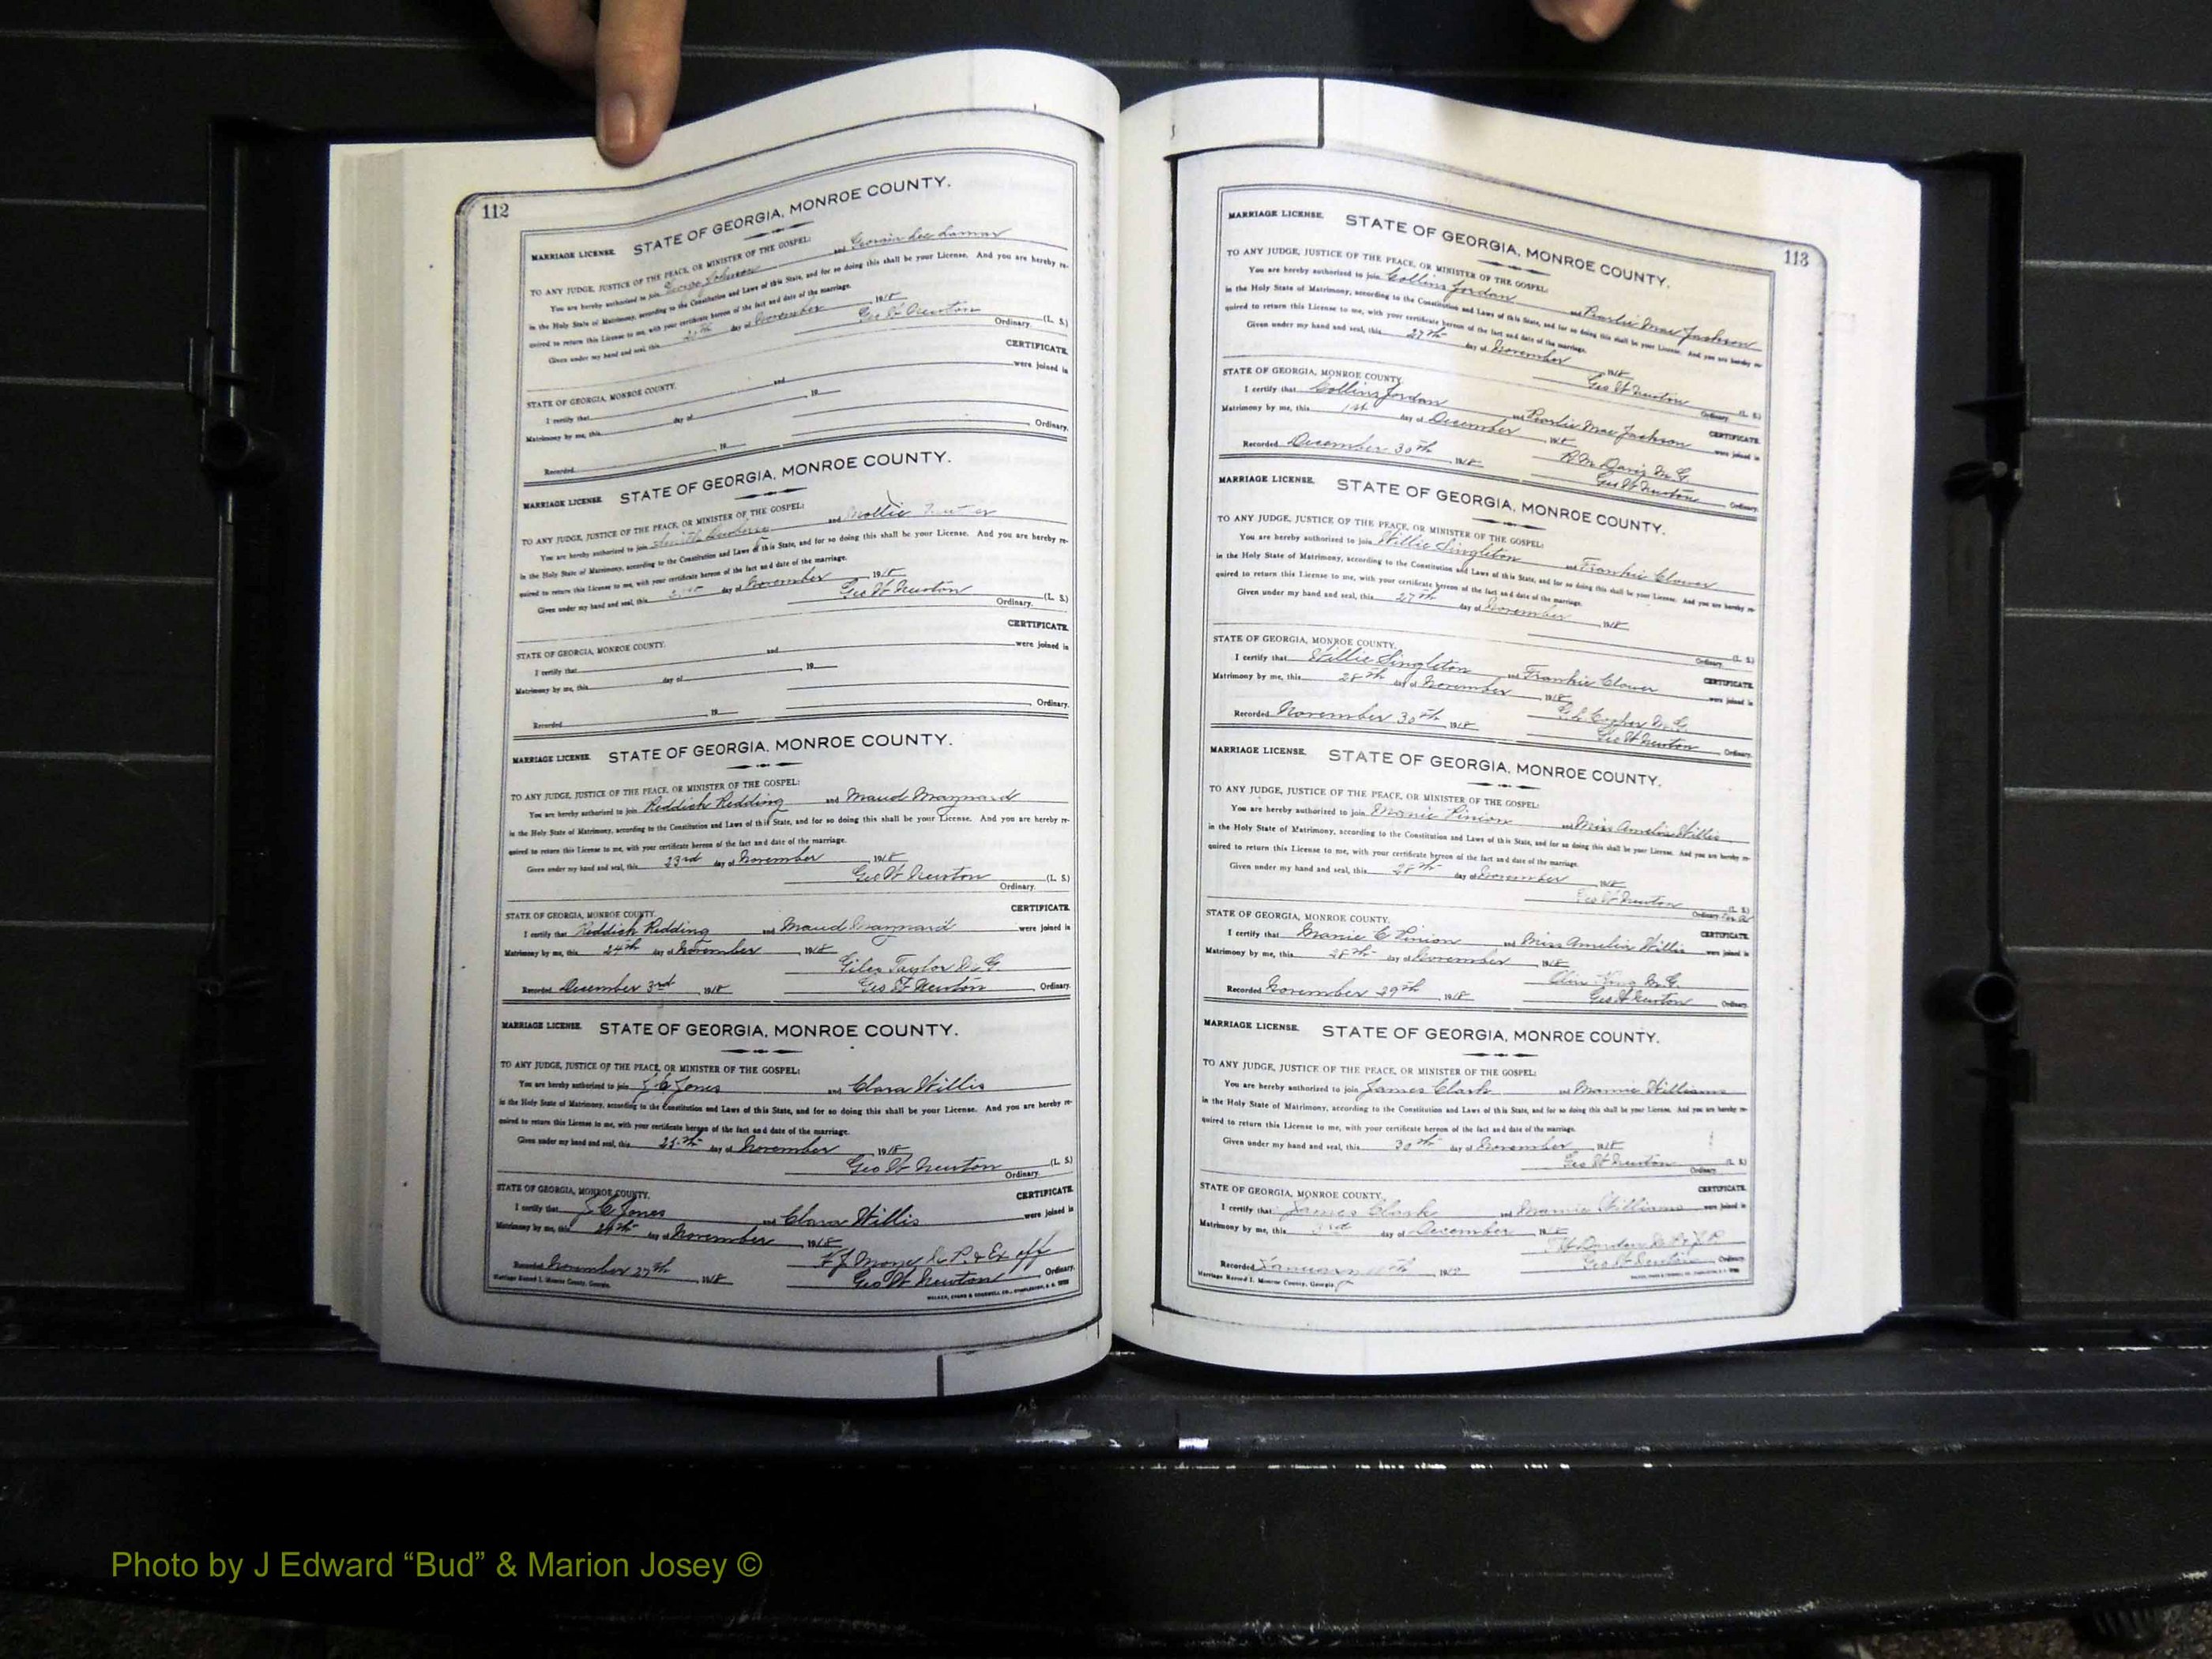 112
MARRIAGE LICENSE. STATE OF GEORGIA, MONROE COUNTY.
TO ANY JUDGE, JUSTICE OF THE PEACE, OR MINISTER OF THE GOSPEL:
You are hereby authorized to join George Johnson and Georgia Lee Lamar
in the Holy State of Matrimony, according to the Constitution and Laws of this State, and for so doing this shall be your License. And you are hereby re-
quired to return this License to me, with your certificate hereon of the fact and date of the marriage.
Given under my hand and seal, this day of November 1918
Geo W Newton (L. S.)
Ordinary.
CERTIFICATE.
STATE OF GEORGIA, MONROE COUNTY.
I certify that and were joined in
Matrimony by me, this day of , 19
Recorded , 19 Ordinary.
MARRIAGE LICENSE. STATE OF GEORGIA, MONROE COUNTY.
TO ANY JUDGE, JUSTICE OF THE PEACE, OR MINISTER OF THE GOSPEL:
You are hereby authorized to join Smith and Mollie
in the Holy State of Matrimony, according to the Constitution and Laws of this State, and for so doing this shall be your License. And you are hereby re-
quired to return this License to me, with your certificate hereon of the fact and date of the marriage.
Given under my hand and seal, this day of November 1918
Geo W Newton (L. S.)
Ordinary.
CERTIFICATE.
STATE OF GEORGIA, MONROE COUNTY.
I certify that and were joined in
Matrimony by me, this day of , 19
Recorded , 19 Ordinary.
MARRIAGE LICENSE. STATE OF GEORGIA, MONROE COUNTY.
TO ANY JUDGE, JUSTICE OF THE PEACE, OR MINISTER OF THE GOSPEL:
You are hereby authorized to join Reddick Redding and Maud Maynard
in the Holy State of Matrimony, according to the Constitution and Laws of this State, and for so doing this shall be your License. And you are hereby re-
quired to return this License to me, with your certificate hereon of the fact and date of the marriage.
Given under my hand and seal, this 23rd day of November , 1918
Geo W Newton (L. S.)
Ordinary.
STATE OF GEORGIA, MONROE COUNTY. CERTIFICATE.
I certify that Reddick Redding and Maud Maynard were joined in
Matrimony by me, this 24th day of November , 1918
Giles Taylor M. G.
Recorded December 3rd , 1918 Geo W Newton Ordinary.
MARRIAGE LICENSE. STATE OF GEORGIA, MONROE COUNTY.
TO ANY JUDGE, JUSTICE OF THE PEACE, OR MINISTER OF THE GOSPEL:
You are hereby authorized to join J C Jones and Clara Willis
in the Holy State of Matrimony, according to the Constitution and Laws of this State, and for so doing this shall be your License. And you are hereby re-
quired to return this License to me, with your certificate hereon of the fact and date of the marriage.
Given under my hand and seal, this 25th day of November , 1918
Geo W Newton (L. S.)
Ordinary.
STATE OF GEORGIA, MONROE COUNTY. CERTIFICATE.
I certify that J C Jones and Clara Willis were joined in
Matrimony by me, this day of November , 1918
N. P. & Ex off
Recorded November 27th , 1918 Geo W Newton Ordinary.
Marriage Record I. Monroe County, Georgia.
113
MARRIAGE LICENSE. STATE OF GEORGIA, MONROE COUNTY.
TO ANY JUDGE, JUSTICE OF THE PEACE, OR MINISTER OF THE GOSPEL:
You are hereby authorized to join Collins Jordan and Pearlie Mae Jackson
in the Holy State of Matrimony, according to the Constitution and Laws of this State, and for so doing this shall be your License. And you are hereby re-
quired to return this License to me, with your certificate hereon of the fact and date of the marriage.
Given under my hand and seal, this 27th day of November , 1918
Geo W Newton (L. S.)
Ordinary.
STATE OF GEORGIA, MONROE COUNTY. CERTIFICATE.
I certify that Collins Jordan and Pearlie Mae Jackson were joined in
Matrimony by me, this 1st day of December , 1918
R M Davis M. G.
Recorded December 30th , 1918 Geo W Newton Ordinary.
MARRIAGE LICENSE. STATE OF GEORGIA, MONROE COUNTY.
TO ANY JUDGE, JUSTICE OF THE PEACE, OR MINISTER OF THE GOSPEL:
You are hereby authorized to join Willie Singleton and Frankie Clower
in the Holy State of Matrimony, according to the Constitution and Laws of this State, and for so doing this shall be your License. And you are hereby re-
quired to return this License to me, with your certificate hereon of the fact and date of the marriage.
Given under my hand and seal, this 27th day of November , 1918
(L. S.)
Ordinary.
STATE OF GEORGIA, MONROE COUNTY. CERTIFICATE.
I certify that Willie Singleton and Frankie Clower were joined in
Matrimony by me, this 28th day of November , 1918
M. G.
Recorded November 30th , 1918 Geo W Newton Ordinary.
MARRIAGE LICENSE. STATE OF GEORGIA, MONROE COUNTY.
TO ANY JUDGE, JUSTICE OF THE PEACE, OR MINISTER OF THE GOSPEL:
You are hereby authorized to join Pinion and Miss Amelia Willis
in the Holy State of Matrimony, according to the Constitution and Laws of this State, and for so doing this shall be your License. And you are hereby re-
quired to return this License to me, with your certificate hereon of the fact and date of the marriage.
Given under my hand and seal, this 28th day of November , 1918
Geo W Newton (L. S.)
Ordinary
STATE OF GEORGIA, MONROE COUNTY. CERTIFICATE.
I certify that C Pinion and Miss Amelia Willis were joined in
Matrimony by me, this 28th day of November , 1918
King M. G.
Recorded November 29th , 1918 Geo W Newton Ordinary.
MARRIAGE LICENSE. STATE OF GEORGIA, MONROE COUNTY.
TO ANY JUDGE, JUSTICE OF THE PEACE, OR MINISTER OF THE GOSPEL:
You are hereby authorized to join James Clark and Mamie Williams
in the Holy State of Matrimony, according to the Constitution and Laws of this State, and for so doing this shall be your License. And you are hereby re-
quired to return this License to me, with your certificate hereon of the fact and date of the marriage.
Given under my hand and seal, this 30th day of November , 1918
Geo W Newton (L. S.)
Ordinary.
STATE OF GEORGIA, MONROE COUNTY. CERTIFICATE.
I certify that James Clark and Mamie Williams were joined in
Matrimony by me, this 3rd day of December , 1918
Recorded January , 19 Geo W Newton Ordinary.
Marriage Record I. Monroe County, Georgia
Photo by J Edward “Bud” & Marion Josey ©